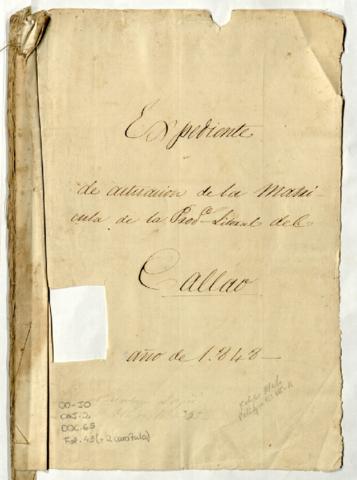 Expediente
de actuacion de la Matri-
cula de la Prov.ª Litoral del
Callao
año de 1.848—
OO-IO
CAJ-2
DOC.65
Fol. 43 (+ 2 carátula)